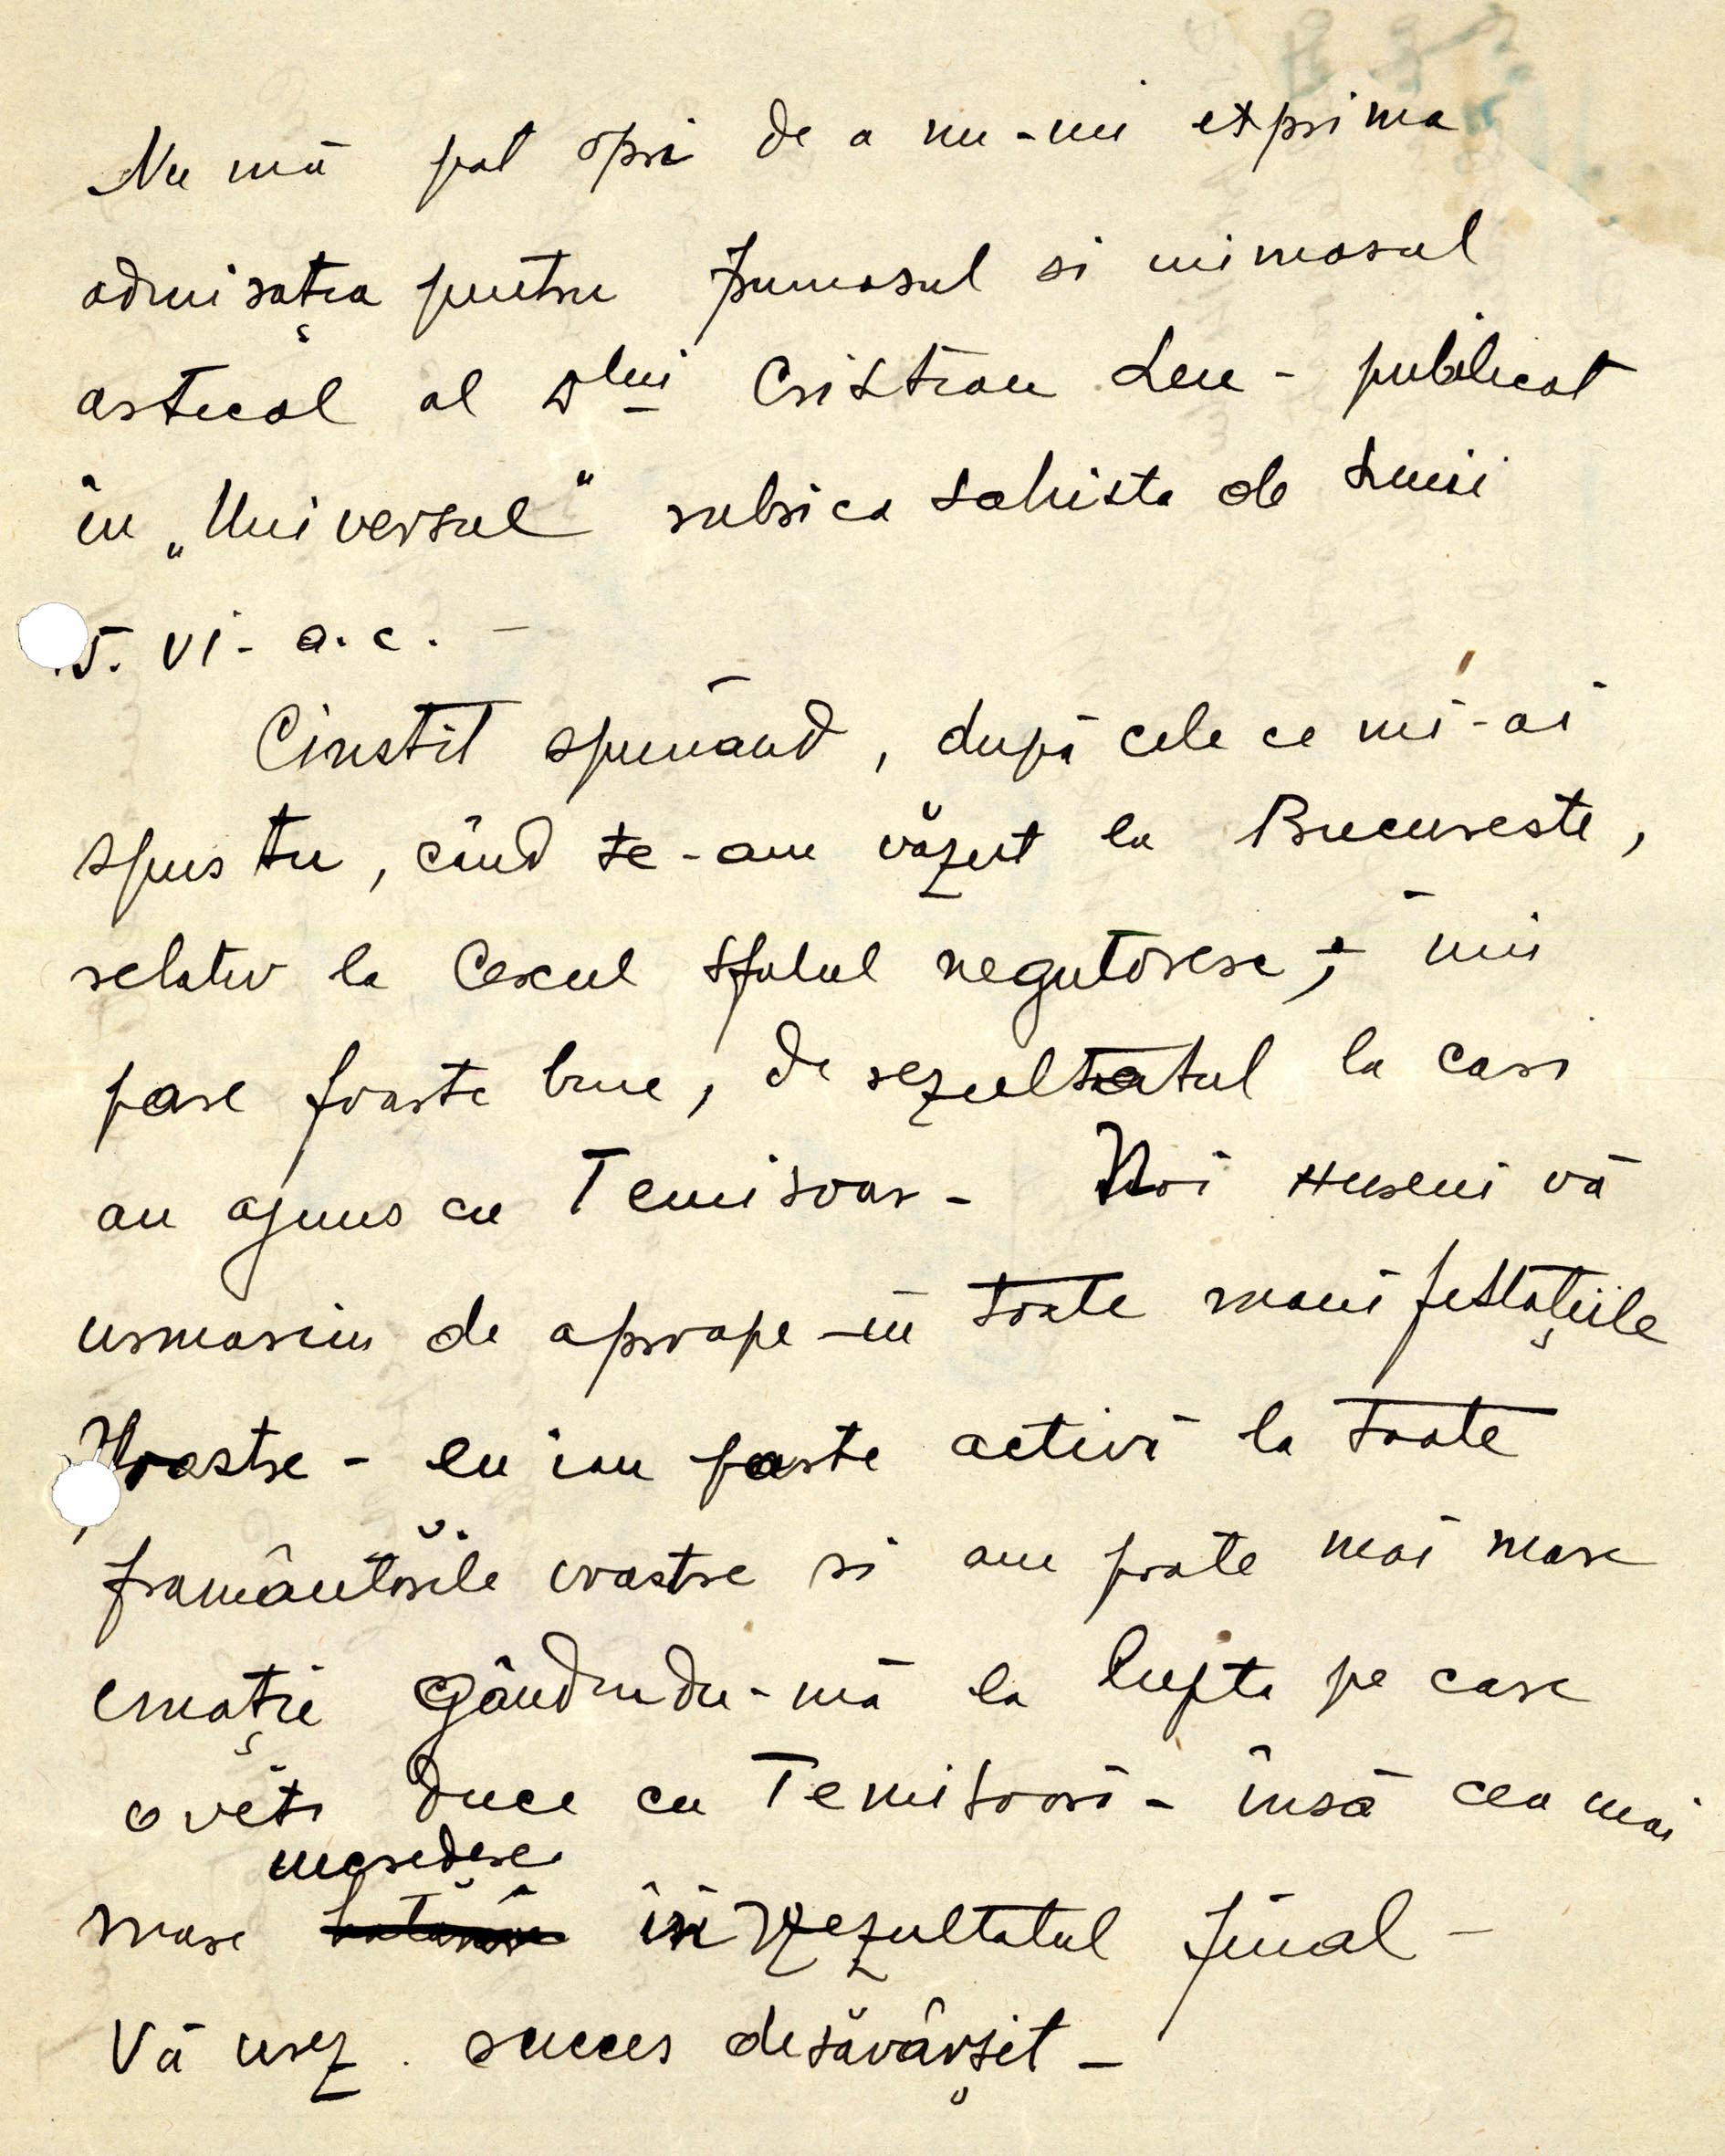 Nu mă pot opri de a nu-mi exprima
admirația pentru frumosul si inimosul
articol al Dlui Cristian Leu - publicat
în „Universul" rubrica sahista de Luni
5. VI. a.c. -
Cinstit spunând, după cele ce mi-ai
spus tu, când te-am văzut la Bucureste,
relativ la Cercul Sfatul negutoresc; îmi
pare foarte bine, de rezultatul la cari
au ajuns cu Temisoar - Noi Huseni vă
urmarim de aproape -in toate manifestațiile
Voastre - eu iau parte activă la toate
framântările voastre si am poate mai mare
emoție gândindu-mă la lupta pe care
o veti duce cu Temisoară - însă cea mai
incredere
mare în Rezultatul final -
Vă urez succes desăvârșit -